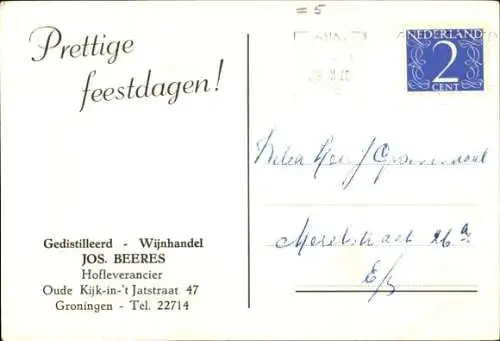 = 5
NEDERLAND
2
CENT
Prettige
feestdagen!
Gedistilleerd - Wijnhandel
JOS. BEERES
Hofleverancier
Oude Kijk-in-'t Jatstraat 47
Groningen - Tel. 22714
Merelstraat 26a